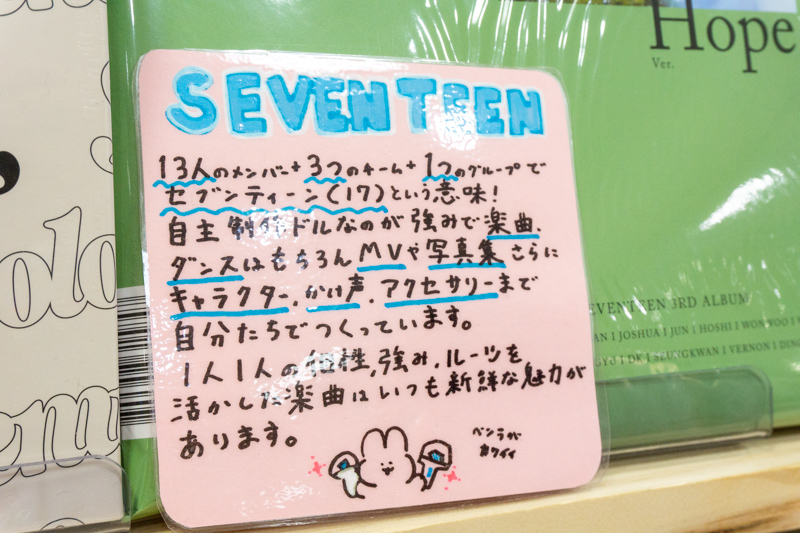 Hope
Ver.
SEVENTEEN
13人のメンバー+3つのチーム+1つのグループで
セブンティーン(17)という意味!
自主制作ドルなのが強みで楽曲、
ダンスはもちろんMVや写真集さらに
キャラクター、かけ声、アクセサリーまで
自分たちでつくっています。
1人1人の個性,強み,ルーツを
活かした楽曲はいつも新鮮な魅力が
あります。
ペンラが
カワイイ
SEVENTEEN 3RD ALBUM
JOSHUA I JUN I HOSHI I WONWOO I
DK I SEUNGKWAN I VERNON I DINO